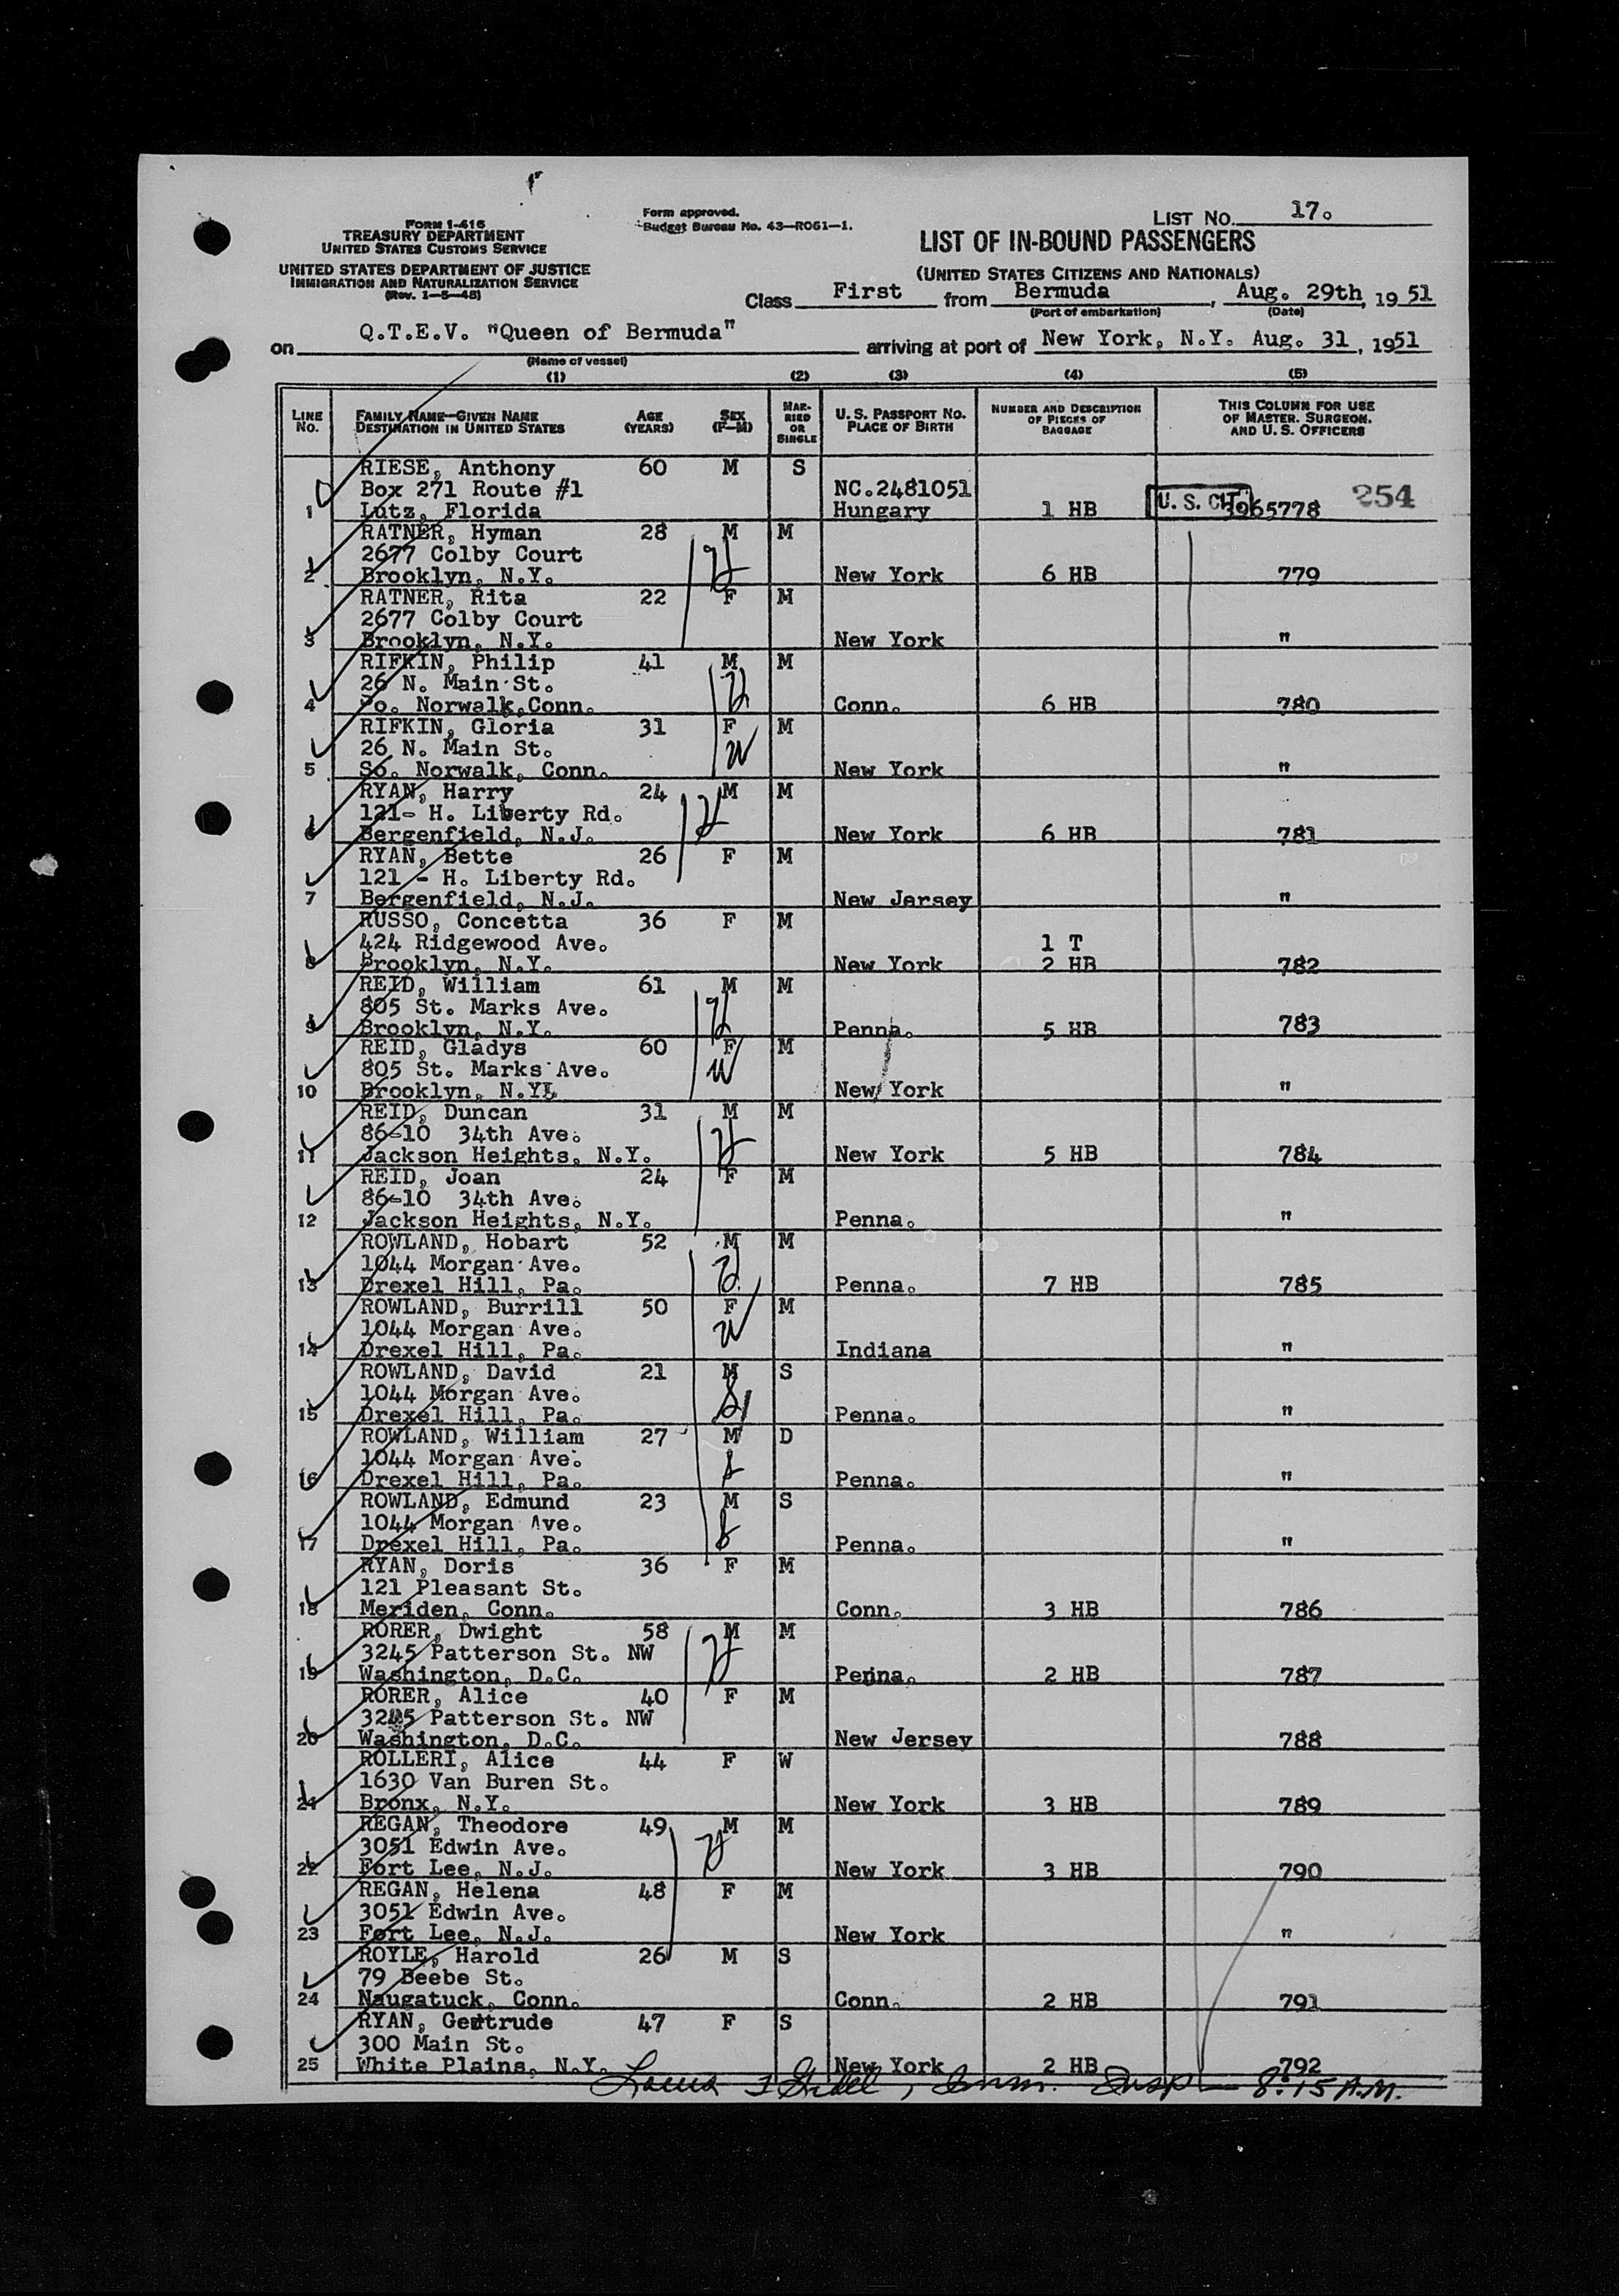 Form approved.
Budget Bureau No. 43—R061—1.
LIST NO. 17.
FORM I-416
TREASURY DEPARTMENT
UNITED STATES CUSTOMS SERVICE
UNITED STATES DEPARTMENT OF JUSTICE
IMMIGRATION AND NATURALIZATION SERVICE
(Rev. 1—5—48)
LIST OF IN-BOUND PASSENGERS
(UNITED STATES CITIZENS AND NATIONALS)
Class First from Bermuda, Aug. 29th, 1951
(Port of embarkation) (Date)
on Q.T.E.V. "Queen of Bermuda" arriving at port of New York, N.Y. Aug. 31, 1951
(Name of vessel)
(1) (2) (3) (4) (5)
LINE NO. FAMILY NAME—GIVEN NAME DESTINATION IN UNITED STATES AGE (YEARS) SEX (F—M) MARRIED OR SINGLE U. S. PASSPORT NO. PLACE OF BIRTH NUMBER AND DESCRIPTION OF PIECES OF BAGGAGE THIS COLUMN FOR USE OF MASTER. SURGEON. AND U. S. OFFICERS
RIESE, Anthony 60 M S
Box 271 Route #1 NC.2481051
1 Lutz, Florida Hungary 1 HB U. S. CIT. 3965778 254
RATNER, Hyman 28 M M
2677 Colby Court
2 Brooklyn, N.Y. New York 6 HB 779
RATNER, Rita 22 F M
2677 Colby Court
3 Brooklyn, N.Y. New York "
RIFKIN, Philip 41 M M
26 N. Main St.
4 So. Norwalk,Conn. Conn. 6 HB 780
RIFKIN, Gloria 31 F M
26 N. Main St.
5 So. Norwalk, Conn. New York "
RYAN, Harry 24 M M
121- H. Liberty Rd.
6 Bergenfield, N.J. New York 6 HB 781
RYAN, Bette 26 F M
121 - H. Liberty Rd.
7 Bergenfield, N.J. New Jersey "
RUSSO, Concetta 36 F M
424 Ridgewood Ave. 1 T
8 Brooklyn, N.Y. New York 2 HB 782
REID, William 61 M M
805 St. Marks Ave.
9 Brooklyn, N.Y. Penna. 5 HB 783
REID, Gladys 60 F M
805 St. Marks Ave.
10 Brooklyn, N.Y. New York "
REID, Duncan 31 M M
86-10 34th Ave.
11 Jackson Heights, N.Y. New York 5 HB 784
REID, Joan 24 F M
86-10 34th Ave.
12 Jackson Heights, N.Y. Penna. "
ROWLAND, Hobart 52 M M
1044 Morgan Ave.
13 Drexel Hill, Pa. Penna. 7 HB 785
ROWLAND, Burrill 50 F M
1044 Morgan Ave.
14 Drexel Hill, Pa. Indiana "
ROWLAND, David 21 M S
1044 Morgan Ave.
15 Drexel Hill, Pa. Penna. "
ROWLAND, William 27 M D
1044 Morgan Ave.
16 Drexel Hill, Pa. Penna. "
ROWLAND, Edmund 23 M S
1044 Morgan Ave.
17 Drexel Hill, Pa. Penna. "
RYAN, Doris 36 F M
121 Pleasant St.
18 Meriden, Conn. Conn. 3 HB 786
RORER, Dwight 58 M M
3245 Patterson St. NW
19 Washington, D.C. Penna. 2 HB 787
RORER, Alice 40 F M
3245 Patterson St. NW
20 Washington, D.C. New Jersey 788
ROLLERI, Alice 44 F W
1630 Van Buren St.
21 Bronx, N.Y. New York 3 HB 789
REGAN, Theodore 49 M M
3051 Edwin Ave.
22 Fort Lee, N.J. New York 3 HB 790
REGAN, Helena 48 F M
3051 Edwin Ave.
23 Fort Lee, N.J. New York "
ROYLE, Harold 26 M S
79 Beebe St.
24 Naugatuck, Conn. Conn. 2 HB 791
RYAN, Gertrude 47 F S
300 Main St.
25 White Plains, N.Y. New York 2 HB 792
Imm. Insp — 8:15 A.M.